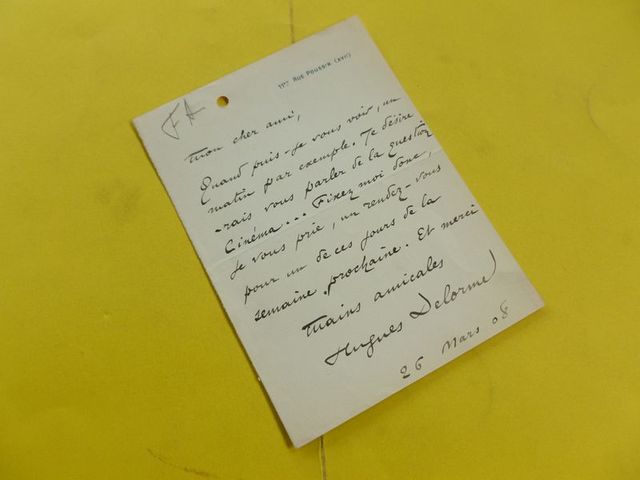 11bis Rue Poussin (XVIe)
FA
Mon cher ami,
Quand puis-je vous voir, un
matin par exemple. Je désire
-rais vous parler de la question
Cinéma... Fixez moi donc,
je vous prie, un rendez-vous
pour un de ces jours de la
semaine prochaine. Et merci
Mains amicales
Hugues Delorme
26 Mars 08